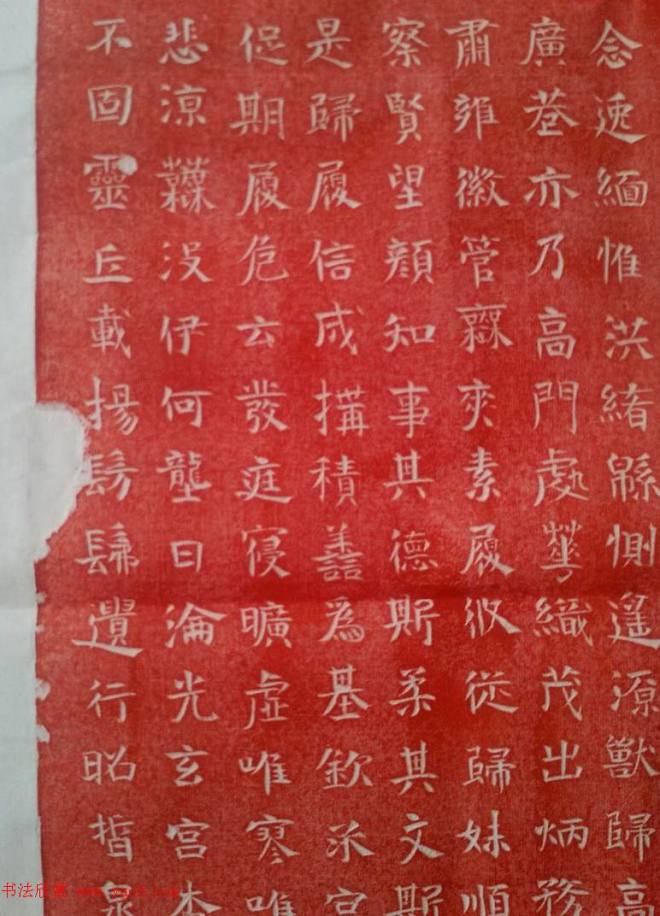 念遠緬惟洪緒緜惻遥源猷歸高
廣巷亦乃高門處華織茂出炳務
肅雍徽管齋爽素履攸從歸妹順
察賢望顔知事其德斯柔其文斯
是歸履信成構積善爲基欽
促期履危云發庭寑曠虚唯寒唯
悲涼没伊何壟日淪光玄宮
不固靈丘載揚遺行昭晢泉
书法欣赏